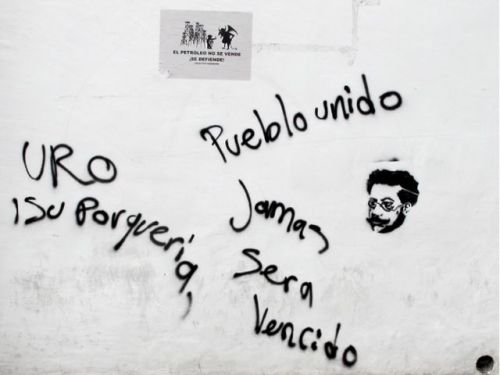 EL PETROLEO NO SE VENDE
¡SE DEFIENDE!
Pueblo unido
Jamas
Sera
Vencido
URO
¡Su Porqueria,